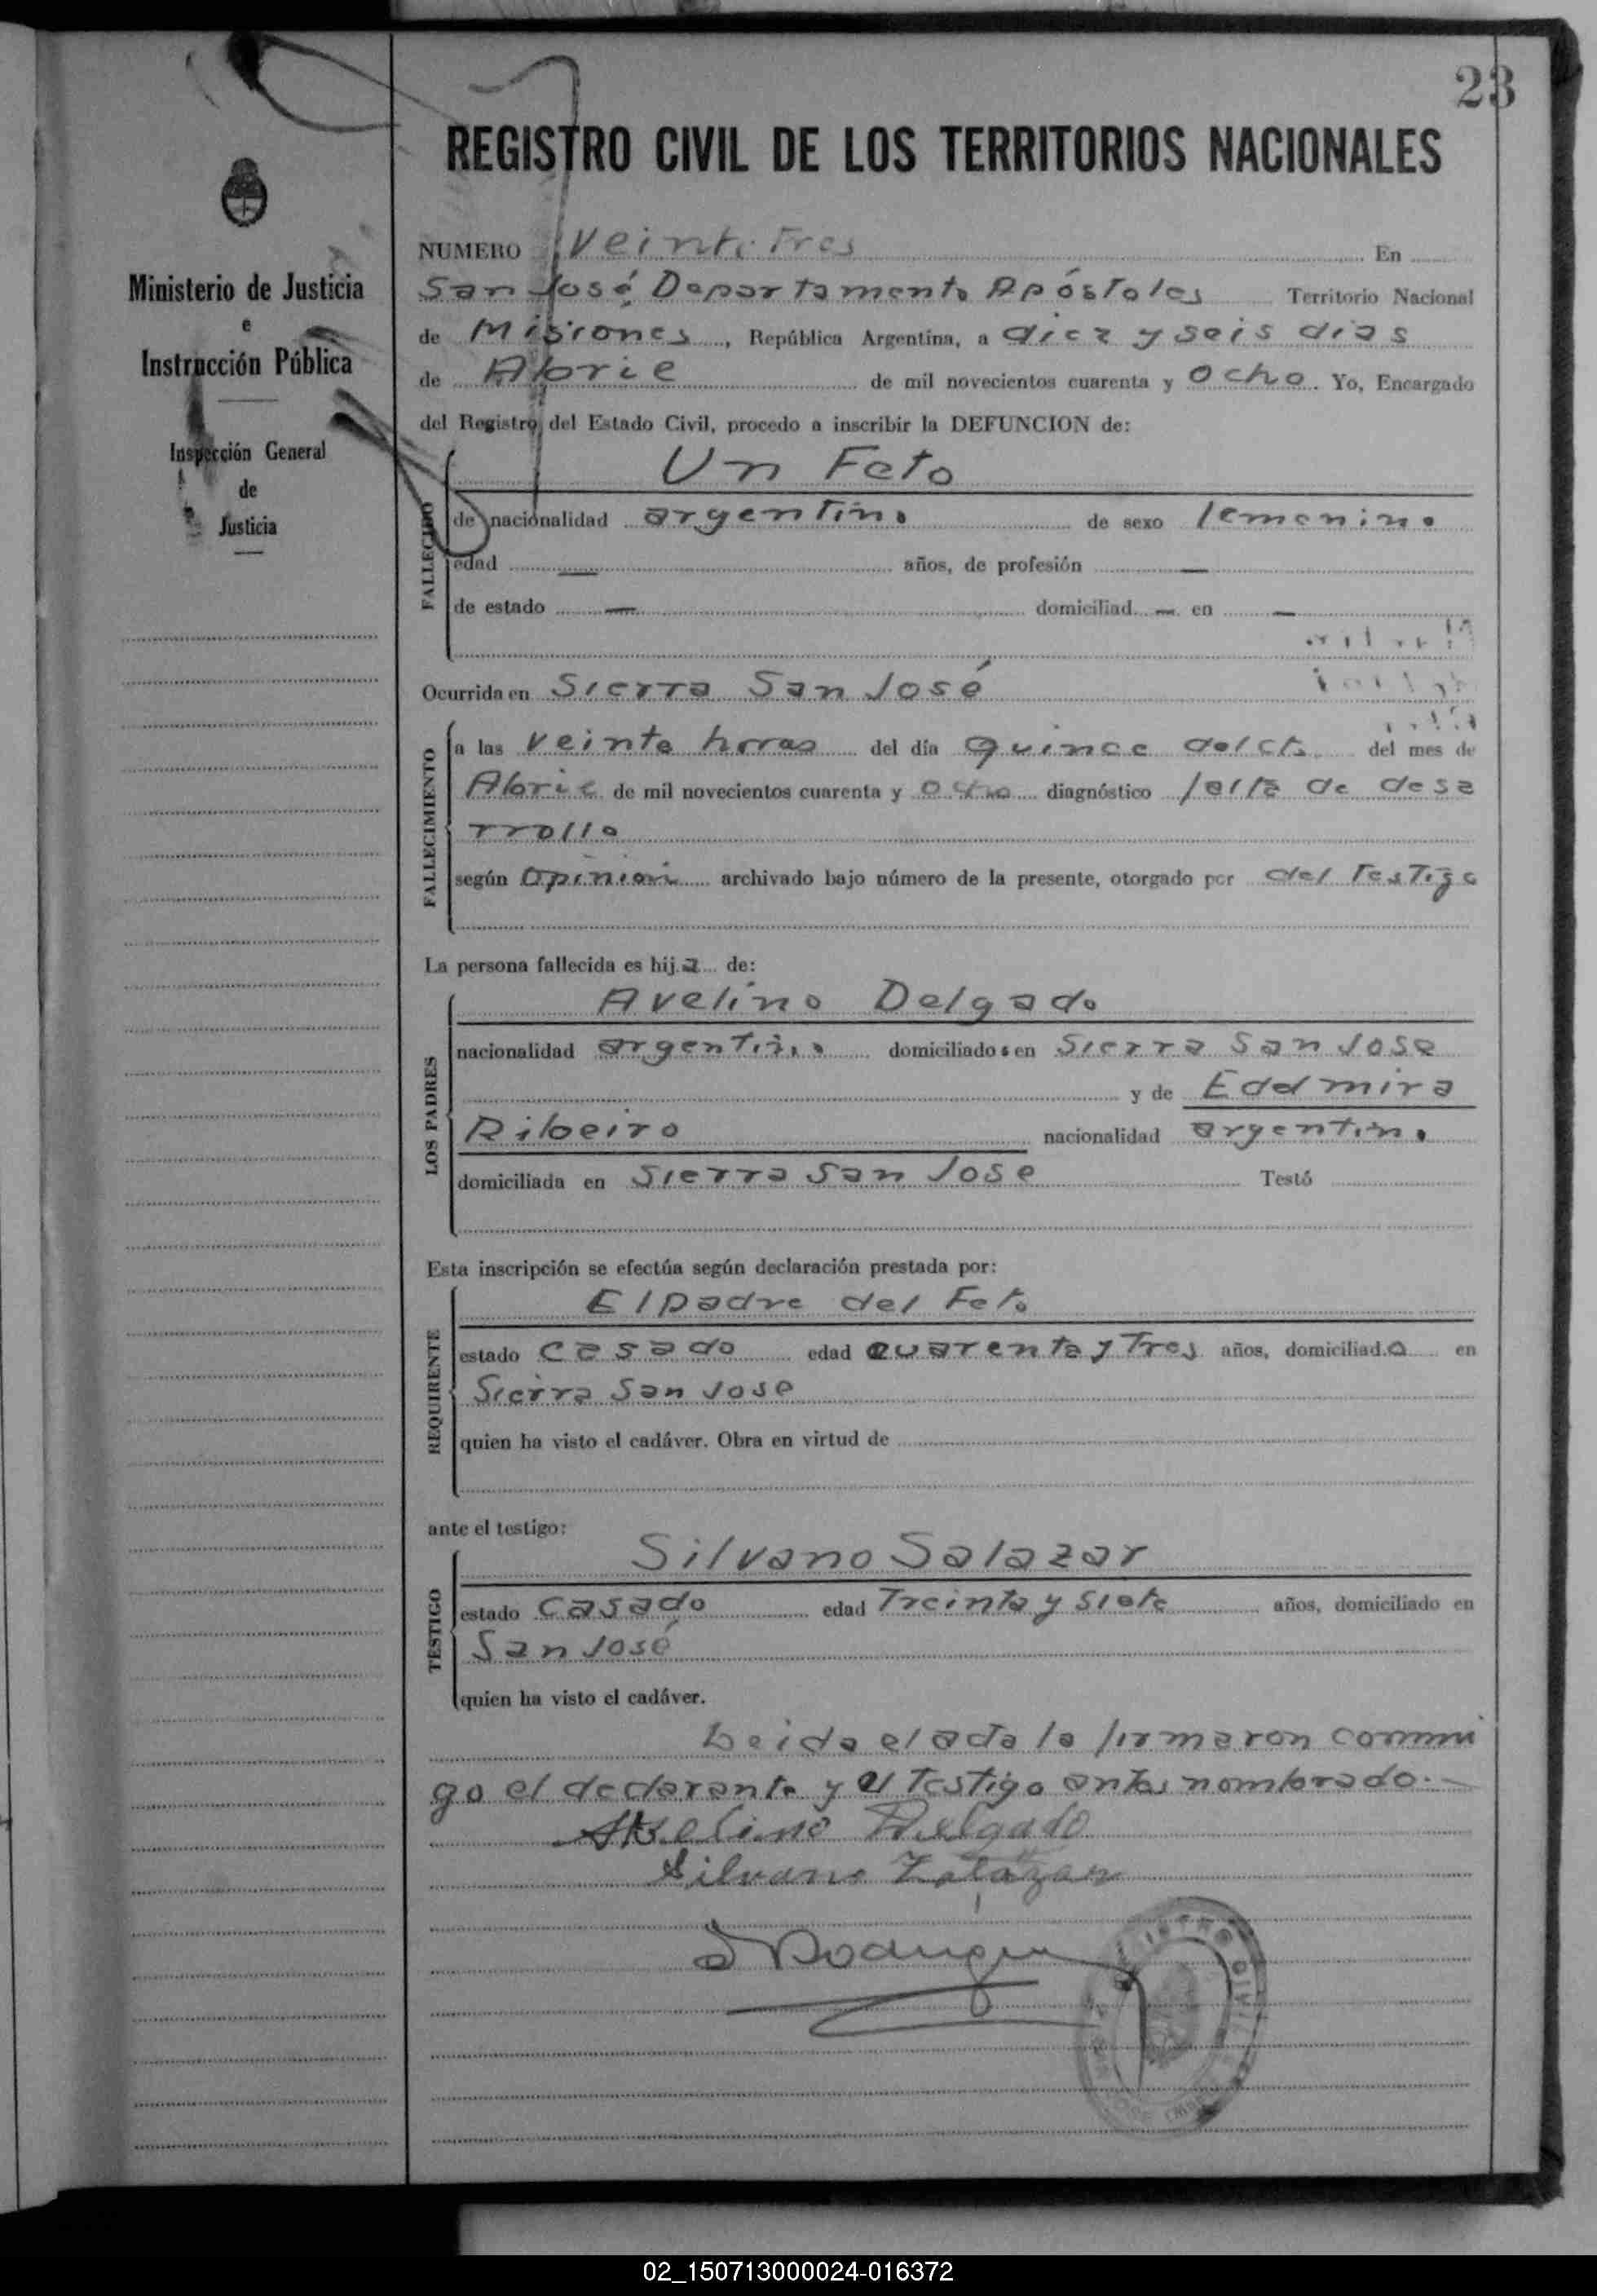 23
REGISTRO CIVIL DE LOS TERRITORIOS NACIONALES
Ministerio de Justicia
e
Instrucción Pública
Inspección General
de
Justicia
NUMERO Veinti Tres En
San José Departamento Apóstoles Territorio Nacional
de Misiones, República Argentina, a diez y seis dias
de Abril de mil novecientos cuarenta y ocho. Yo, Encargado
del Registro del Estado Civil, procedo a inscribir la DEFUNCION de:
FALLECIDO
Un Feto
de nacionalidad argentino de sexo femenino
edad — años, de profesión —
de estado — domiciliad — en —
Ocurrida en Sierra San José
FALLECIMIENTO
a las veinte horas del día quince del cte. del mes de
Abril de mil novecientos cuarenta y ocho diagnóstico falta de desa
rrollo
según opinión archivado bajo número de la presente, otorgado por del Testigo
La persona fallecida es hija de:
LOS PADRES
Avelino Delgado
nacionalidad argentino domiciliado en Sierra San Jose
y de Edelmira
Ribeiro nacionalidad argentino
domiciliada en Sierra San Jose Testó
Esta inscripción se efectúa según declaración prestada por:
REQUIRENTE
El padre del Feto
estado casado edad cuarenta y Tres años, domiciliado en
Sierra San Jose
quien ha visto el cadáver. Obra en virtud de
ante el testigo:
TESTIGO
Silvano Salazar
estado casado edad Treinta y Siete años, domiciliado en
San José
quien ha visto el cadáver.
Leida el acta la firmaron conmi
go el declarante y el Testigo antes nombrado.—
Avelino Delgado
Silvano Zalazar
02_150713000024-016372